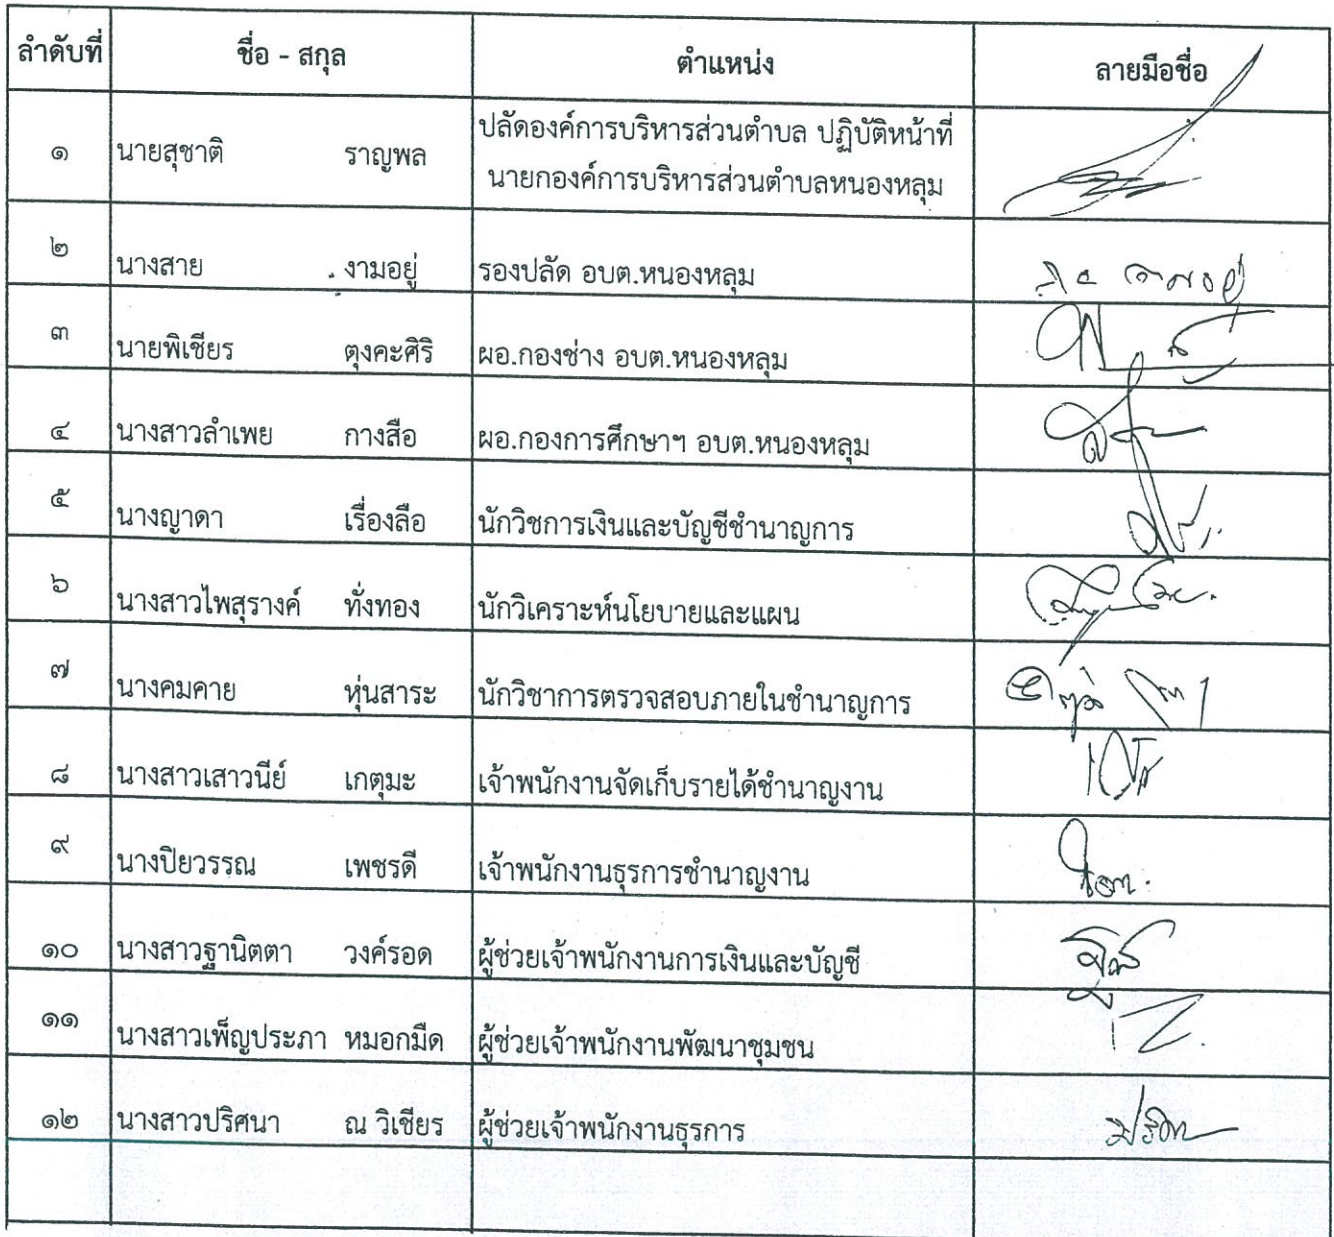 ลำดับที่ ชื่อ - สกุล ตำแหน่ง ลายมือชื่อ
๑ นายสุชาติ ราญพล ปลัดองค์การบริหารส่วนตำบล ปฏิบัติหน้าที่
นายกองค์การบริหารส่วนตำบลหนองหลุม
๒ นางสาย งามอยู่ รองปลัด อบต.หนองหลุม
๓ นายพิเชียร ตุงคะศิริ ผอ.กองช่าง อบต.หนองหลุม
๔ นางสาวลำเพย กางสือ ผอ.กองการศึกษาฯ อบต.หนองหลุม
๕ นางญาดา เรื่องลือ นักวิชการเงินและบัญชีชำนาญการ
๖ นางสาวไพสุรางค์ ทั่งทอง นักวิเคราะห์นโยบายและแผน
๗ นางคมคาย หุ่นสาระ นักวิชาการตรวจสอบภายในชำนาญการ
๘ นางสาวเสาวนีย์ เกตุมะ เจ้าพนักงานจัดเก็บรายได้ชำนาญงาน
๙ นางปิยวรรณ เพชรดี เจ้าพนักงานธุรการชำนาญงาน
๑๐ นางสาวฐานิตตา วงค์รอด ผู้ช่วยเจ้าพนักงานการเงินและบัญชี
๑๑ นางสาวเพ็ญประภา หมอกมืด ผู้ช่วยเจ้าพนักงานพัฒนาชุมชน
๑๒ นางสาวปริศนา ณ วิเชียร ผู้ช่วยเจ้าพนักงานธุรการ